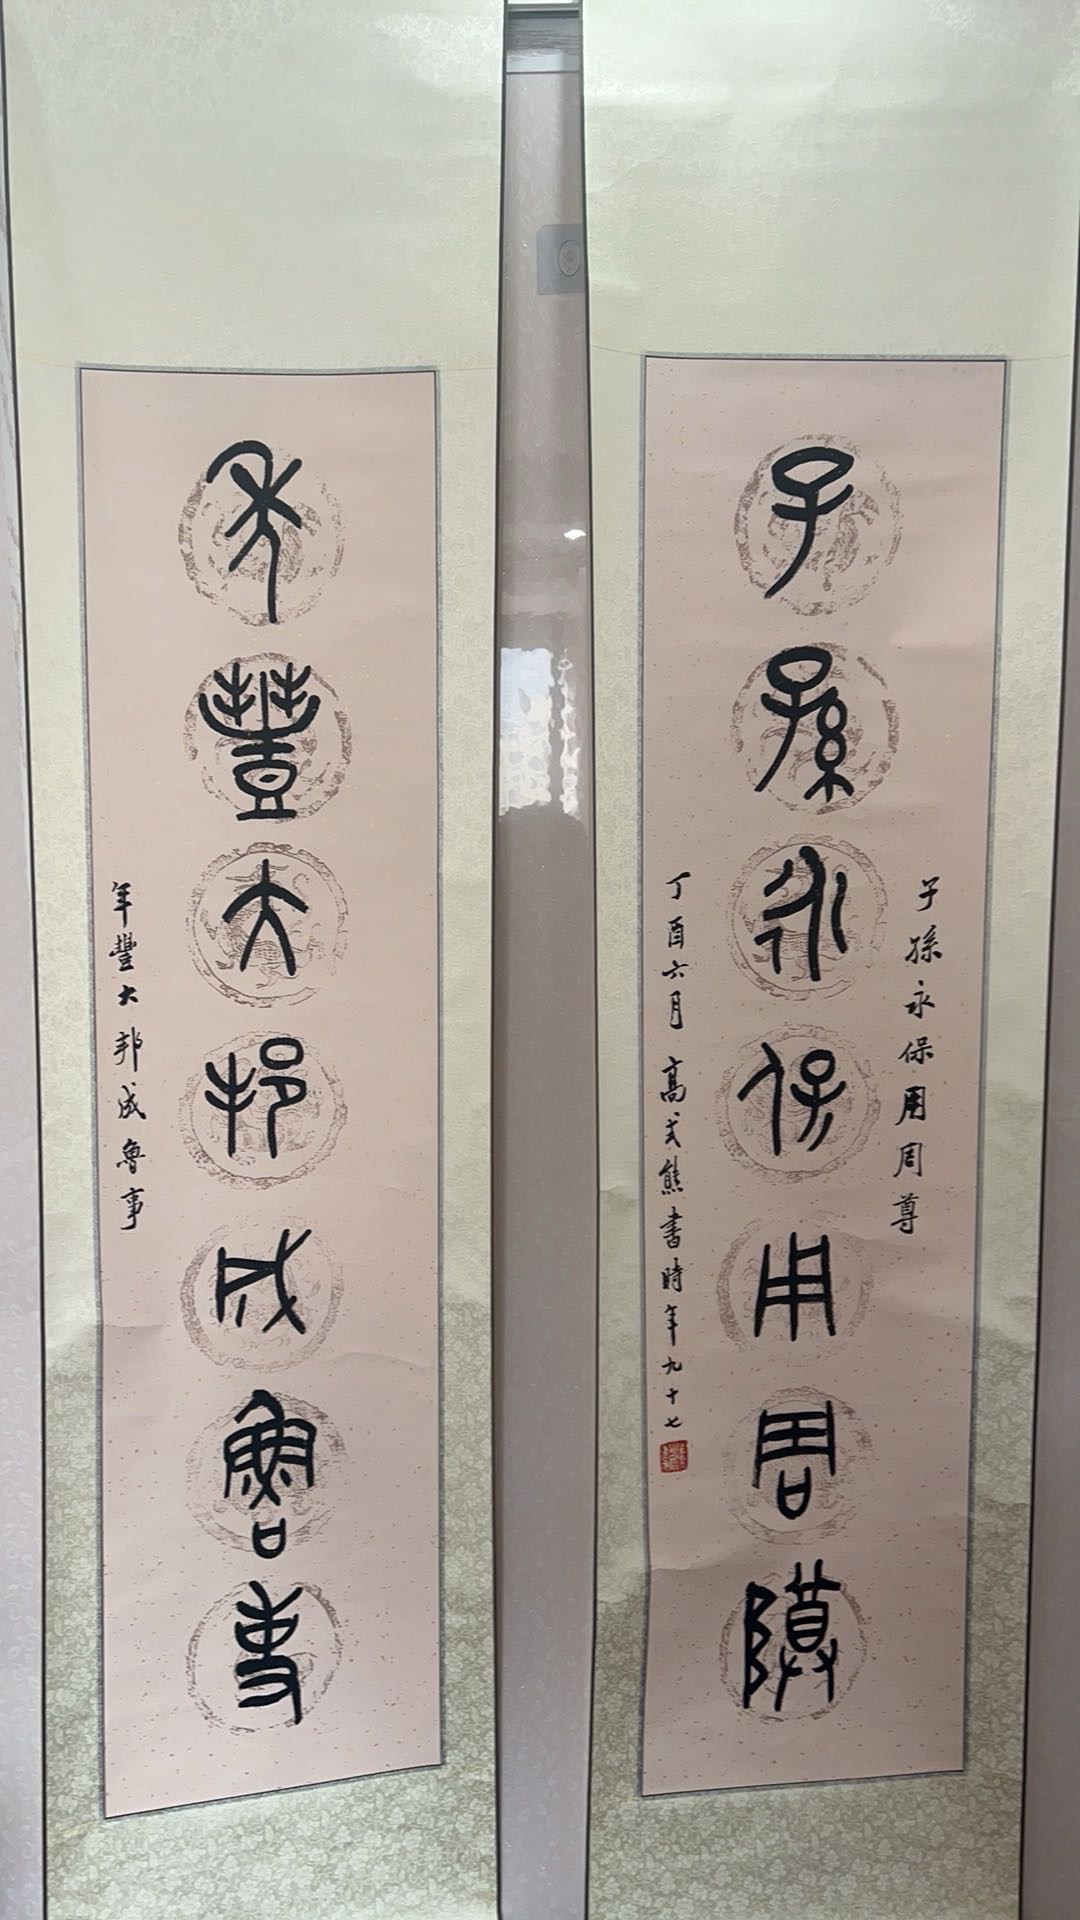 子孫永保用周䵼
子孫永保用周尊
丁酉六月 高式熊書時年九十七
年豐大邦成魯事
年豐大邦成魯事